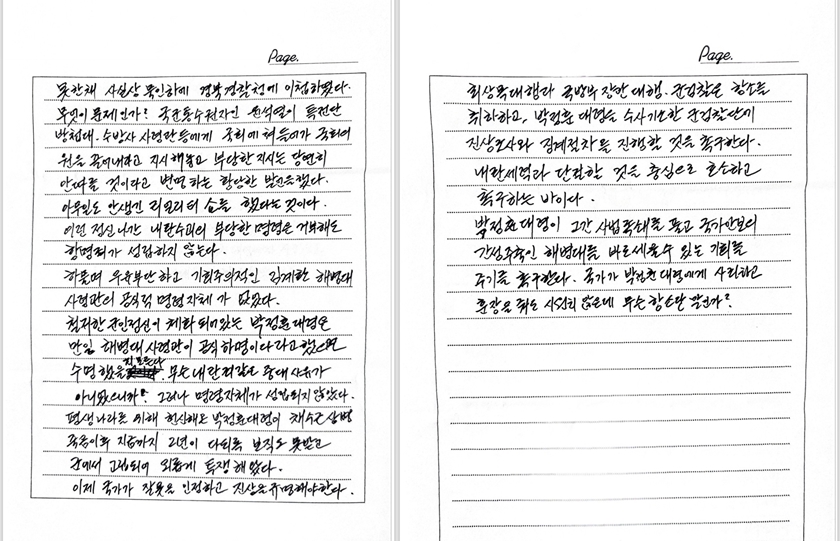 Page.
못한채 사실상 묵인하에 경북경찰청에 이첩하였다.
무엇이 문제인가? 국군통수권자인 윤석열이 특전단
방첩대. 수방사 사령관들에게 국회에 쳐들어가 국회의
원을 끌어내라고 지시해놓고 부당한 지시는 당연히
안따를 것이라고 변명하는 황당한 발언을했다.
아무일도 안생긴 리얼리티 쇼를 했다는것이다.
이런 정신나간 내란수괴의 부당한 명령은 거부해도
항명죄가 성립하지 않는다.
하물며 우유부단하고 기회주의적인 김계환 해병대
사령관의 공식적 명령자체가 없었다.
철저한 군인정신이 체화 되어있는 박정훈 대령은
만일 해병대사령관이 공식하명이다라고했으면
수명했을지 모른다. 무슨 내란죄같은 중대사유가
아니었으니까? 그러나 명령자체가 성립되지않았다.
평생나라를 위해 헌신해온 박정훈대령이 채수근상병
죽음이후 지금까지 2년이 다되록 보직도 못받고
군에서 고립되어 외롭게 투쟁해왔다.
이제 국가가 잘못을 인정하고 진상을규명해야한다.
Page.
최상목대행과 국방부 장관 대행. 군검찰은 항소를
취하하고, 박정훈 대령을 수사기소한 군검찰단에
진상조사와 징계절차를 진행할 것을 촉구한다.
내란세력과 단절할 것을 충심으로 호소하고
촉구하는 바이다.
박정훈대령이 그간 사법족쇄를 풀고 국가안보의
간성주축인 해병대를 바로세울수 있는 기회를
주기를 촉구한다. 국가가 박정훈대령에게 사죄하고
훈장을 줘도 시원치 않은데 무슨 항소란 말인가?